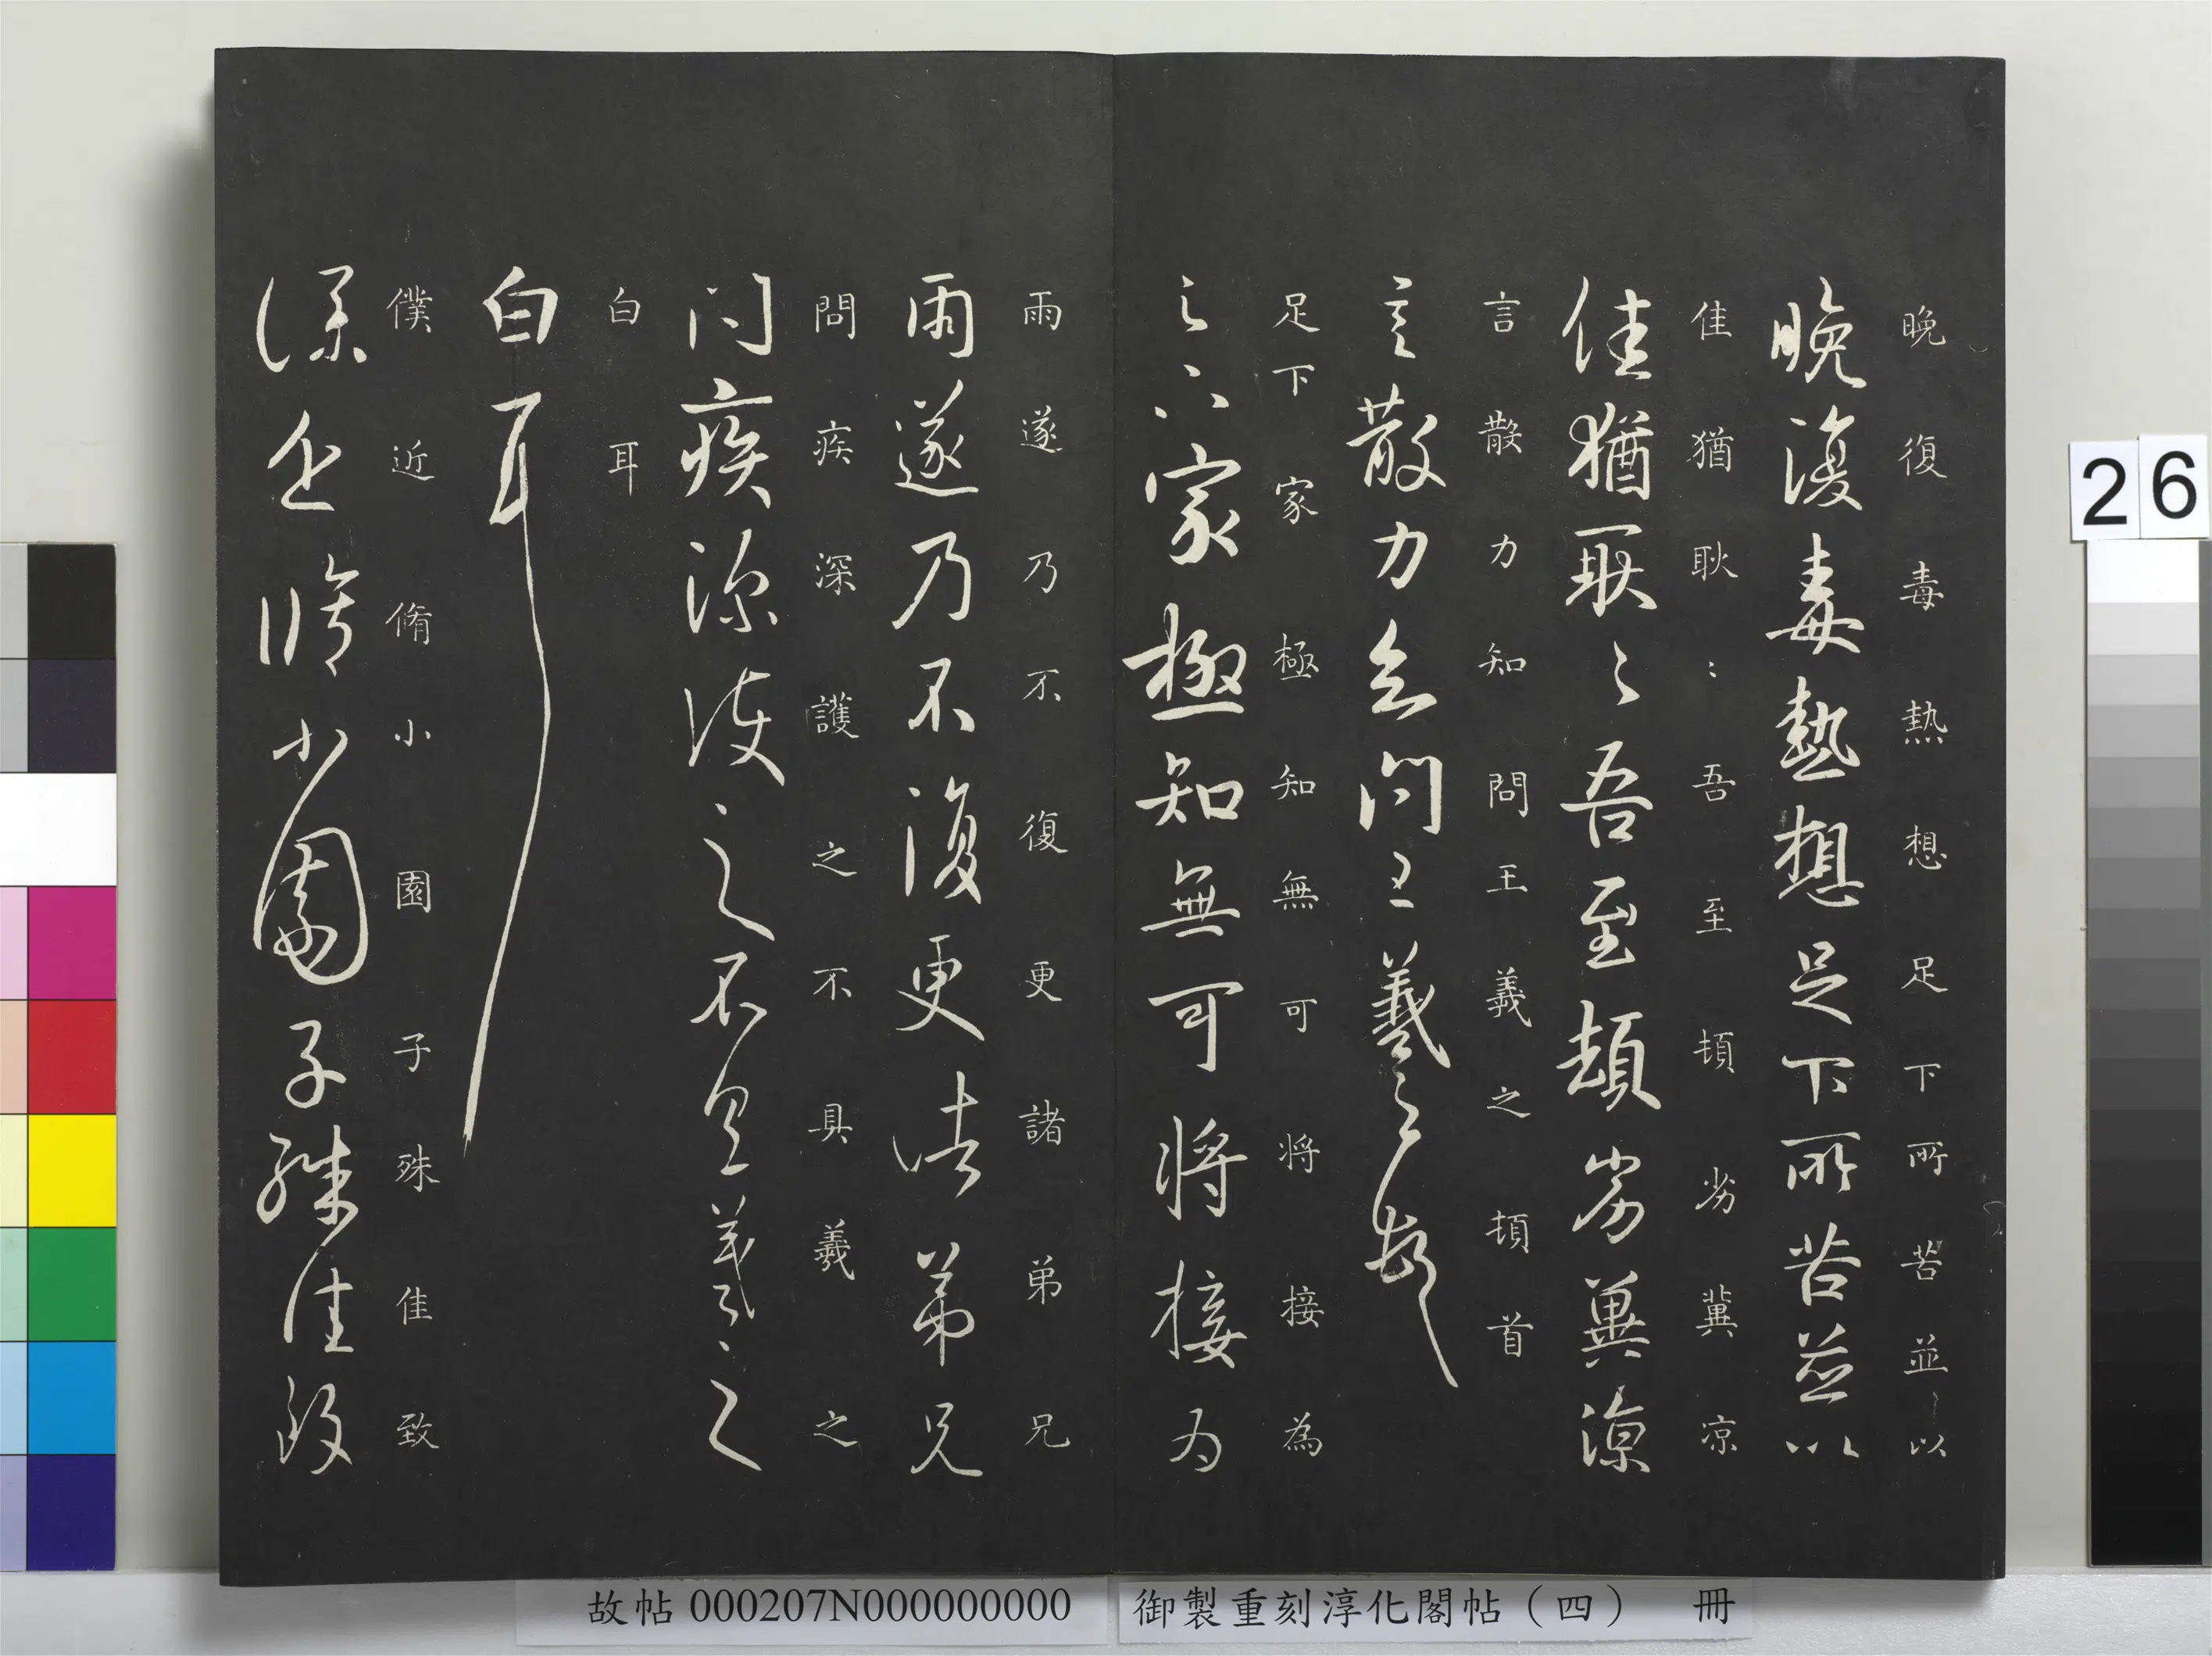 晚復毒熱想足下所苦並以
晚復毒熱想足下所苦並以
佳猶耿〻吾至頓劣冀凉
佳猶耿〻吾至頓劣冀凉
言散力知問王羲之頓首
言散力知問王羲之頓首
足下家極知無可將接為
足下家極知無可將接為
雨遂乃不復更諸弟兄
雨遂乃不復更諸弟兄
問疾深護之不具羲之
問疾深護之不具羲之
白耳
白耳
僕近脩小園子殊佳致
僕近脩小園子殊佳致
26
故帖 000207N000000000
御製重刻淳化閣帖（四） 冊